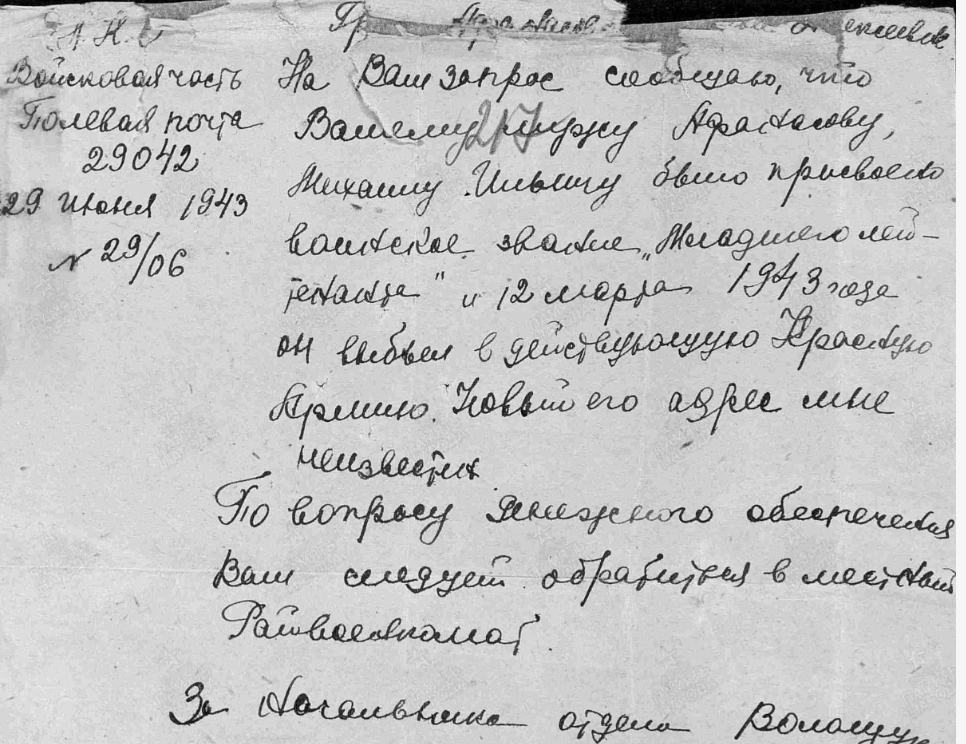 Н. К. О
Войсковая часть
Полевая почта
29042
29 июня 1943
N 29/06
Гр
На Ваш запрос сообщаю, что
Вашему мужу Афанасову,
217
Михаилу Ильичу было присвоено
воинское звание „Младшего лей-
тенанта" и 12 марта 1943 года
он выбыл в действующую Красную
Армию. Новый его адрес мне
неизвестен
По вопросу денежного обеспечения
Вам следует обратиться в местный
Райвоенкомат.
За Начальника отдела